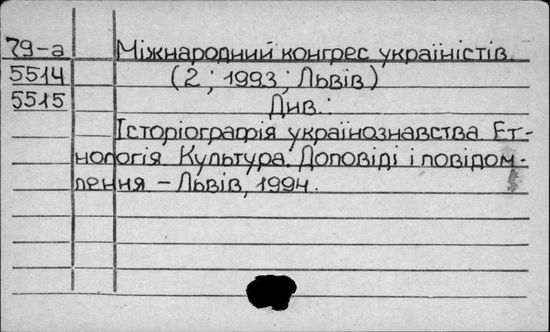 79-а Міжнародний конгрес україністів
5514 (2; 1993; Львів)
5515 Див.:
Історіографія українознавства. Ет-
нологія. Культура. Доповіді і повідом-
лення – Львів, 1994.